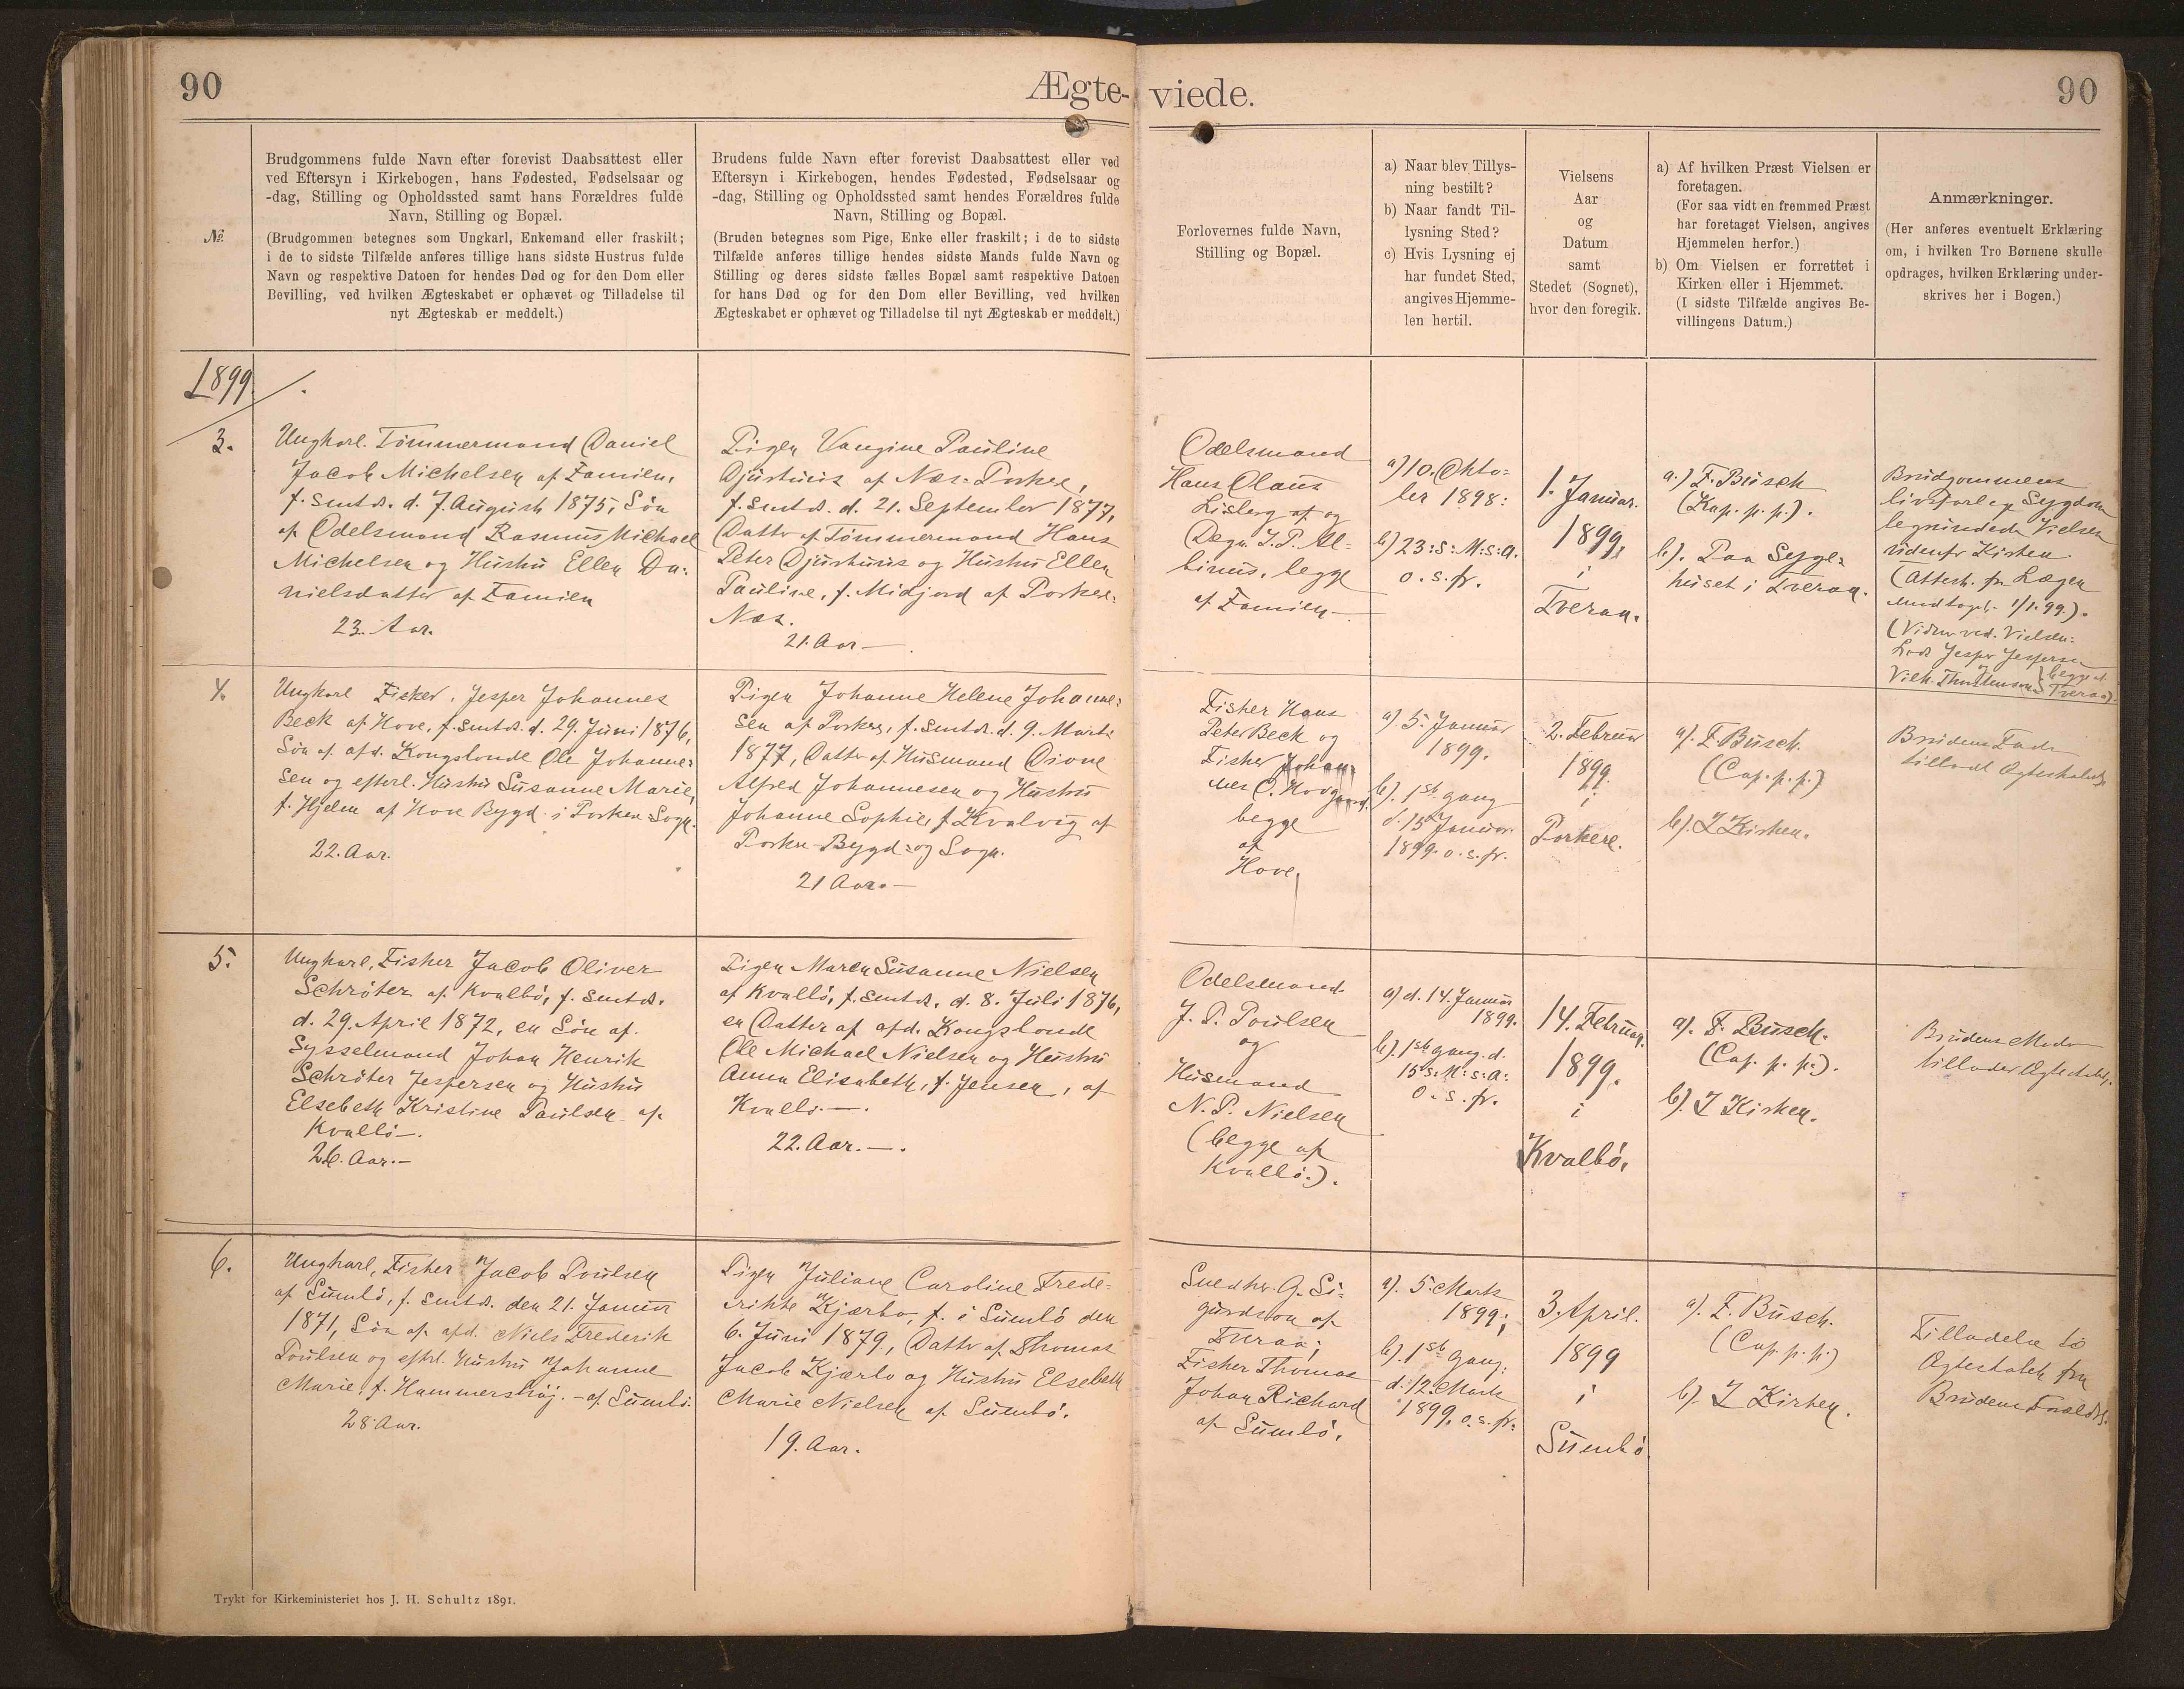 90
Ægte-viede.
90
№
Brudgommens fulde Navn efter forevist Daabsattest eller
ved Eftersyn i Kirkebogen, hans Fødested, Fødselsaar og
-dag, Stilling og Opholdssted samt hans Forældres fulde
Navn, Stilling og Bopæl.
(Brudgommen betegnes som Ungkarl, Enkemand eller fraskilt;
i de to sidste Tilfælde anføres tillige hans sidste Hustrus fulde
Navn og respektive Datoen for hendes Død og for den Dom eller
Bevilling, ved hvilken Ægteskabet er ophævet og Tilladelse til
nyt Ægteskab er meddelt.)
Brudens fulde Navn efter forevist Daabsattest eller ved
Eftersyn i Kirkebogen, hendes Fødested, Fødselsaar og
-dag, Stilling og Opholdssted samt hendes Forældres fulde
Navn, Stilling og Bopæl.
(Bruden betegnes som Pige, Enke eller fraskilt; i de to sidste
Tilfælde anføres tillige hendes sidste Mands fulde Navn og
Stilling og deres sidste fælles Bopæl samt respektive Datoen
for hans Død og for den Dom eller Bevilling, ved hvilken
Ægteskabet er ophævet og Tilladelse til nyt Ægteskab er meddelt.)
Forlovernes fulde Navn,
Stilling og Bopæl.
a) Naar blev Tillys-
ning bestilt?
b) Naar fandt Til-
lysning Sted?
c) Hvis Lysning ej
har fundet Sted,
angives Hjemme-
len hertil.
Vielsens
Aar
og
Datum
samt
Stedet (Sognet),
hvor den foregik.
a) Af hvilken Præst Vielsen er
foretagen.
(For saa vidt en fremmed Præst
har foretaget Vielsen, angives
Hjemmelen herfor.)
b) Om Vielsen er forrettet i
Kirken eller i Hjemmet.
(I sidste Tilfælde angives Be-
villingens Datum.)
Anmærkninger.
(Her anføres eventuelt Erklæring
om, i hvilken Tro Børnene skulle
opdrages, hvilken Erklæring under-
skrives her i Bogen.)
1899.
3.
Ungkarl. Tömmermand Daniel
Jacob Michelsen af Famien,
f. smtds. d. 7. August 1875, Sön
af Odelsmand Rasmus Michael
Michelsen og Hustru Ellen Da-
nielsdatter af Famien
23. Aar.
Pigen Vangine Pauline
Djurhuus af Næs-Porkere,
f. smtds. d. 21. September 1877,
Datter af Tömmermand Hans
Peter Djurhuus og Hustru Ellen
Pauline, f. Midjord af Porkere-
Næs.
21. Aar
Odelsmand
Hans Claus
Lisberg af og
Degn J. P. Al-
binus, begge
af Famien
a) 10. Okto-
ber 1898:
b) 23: s: M: s: A.
o. s. fr.
1. Januar.
1899,
i
Tveraa.
a.) F. Busch
(Kap. p. p.).
b). Paa Syge-
huset i Tveraa.
Brudgommens
livsfarlige Sygdom
begrundede Vielsen
udenfor Kirken.
(Attest. fra Lægen
modtaget 1/1. 99.).
(Vidner ved Vielsen:
Lods Jesper Jespersen
Vilh. Thorsteinsson begge af Tveraa).
4.
Ungkarl Fisker, Jesper Johannes
Beck af Hove, f. smtds. d. 29. Juni 1876,
Sön af afd. Kongsbonde Ole Johanne-
sen og efterl. Hustru Susanne Marie,
f. Hjelm af Hove Bygd i Porkere Sogn.
22. Aar.
Pigen Johanne Helene Johanne-
sen af Porkere, f. smtds. d. 9. Marts
1877, Datter af Husmand Dione
Alfred Johannesen og Hustru
Johanne Sophie, f. Kvalvig af
Porkere Bygd- og Sogn.
21 Aar.
Fisker Hans
Peter Beck og
Fisker Johan-
nes C. Hovgaard
begge
af
Hove,
a). 5. Januar
1899.
b). 1ste gang
d. 15 Januar
1899. o. s. fr.
2. Februar
1899
i
Porkere.
a). F. Busch.
(Cap. p. p.)
b). I Kirken.
Brudens Fader
tillod Ægteskabet
5.
Ungkarl, Fisker Jacob Oliver
Schröter af Kvalbö, f. smtds.
d. 29. April 1872, en Sön af
Sysselmand Johan Henrik
Schröter Jespersen og Hustru
Elsebeth Kristine Paulsen af
Kvalbö.
26. Aar.
Pigen Maren Susanne Nielsen
af Kvalbö, f. smtds. d. 8. Juli 1876,
en Datter af afd. Kongsbonde
Ole Michael Nielsen og Hustru
Anna Elisabeth, f. Jensen, af
Kvalbö.
22. Aar.
Odelsmand
J. P. Poulsen
og
Husmand
N. P. Nielsen
(begge af
Kvalbö.).
a) d. 14. Januar
1899.
b). 1ste gang. d.
15 s: M: s: A:
o. s. fr.
14. Februar.
1899.
i
Kvalbö.
a). F. Busch.
(Cap. p. p.).
b). I Kirken.
Brudens Moder
tillader Ægteskabet.
6.
Ungkarl, Fisker Jacob Poulsen
af Sumbö, f. smtds. den 21. Januar
1871, Sön af afd. Niels Frederik
Poulsen og efterl. Hustru Johanne
Marie, f. Hammershøj. - af Sumbö.
28. Aar.
Pigen Juliane Caroline Frede-
rikke Kjærbo, f. i Sumbö den
6. Juni 1879, Datter af Thomas
Jacob Kjærbo og Hustru Elsebeth
Marie Nielsen af Sumbö.
19. Aar.
Snedker. G. Si-
gurdson af
Tveraa;
Fisker Thomas
Johan Richard
af Sumbö.
a). 5. Marts
1899;
b). 1ste Gang.
d. 12. Marts
1899. o. s. fr.
3. April.
1899
i
Sumbö
a). F. Busch.
(Cap. p. p.)
b). I Kirken.
Tilladelse til
Ægteskabet fra
Brudens Forældre.
Trykt for Kirkeministeriet hos J. H. Schultz 1891.